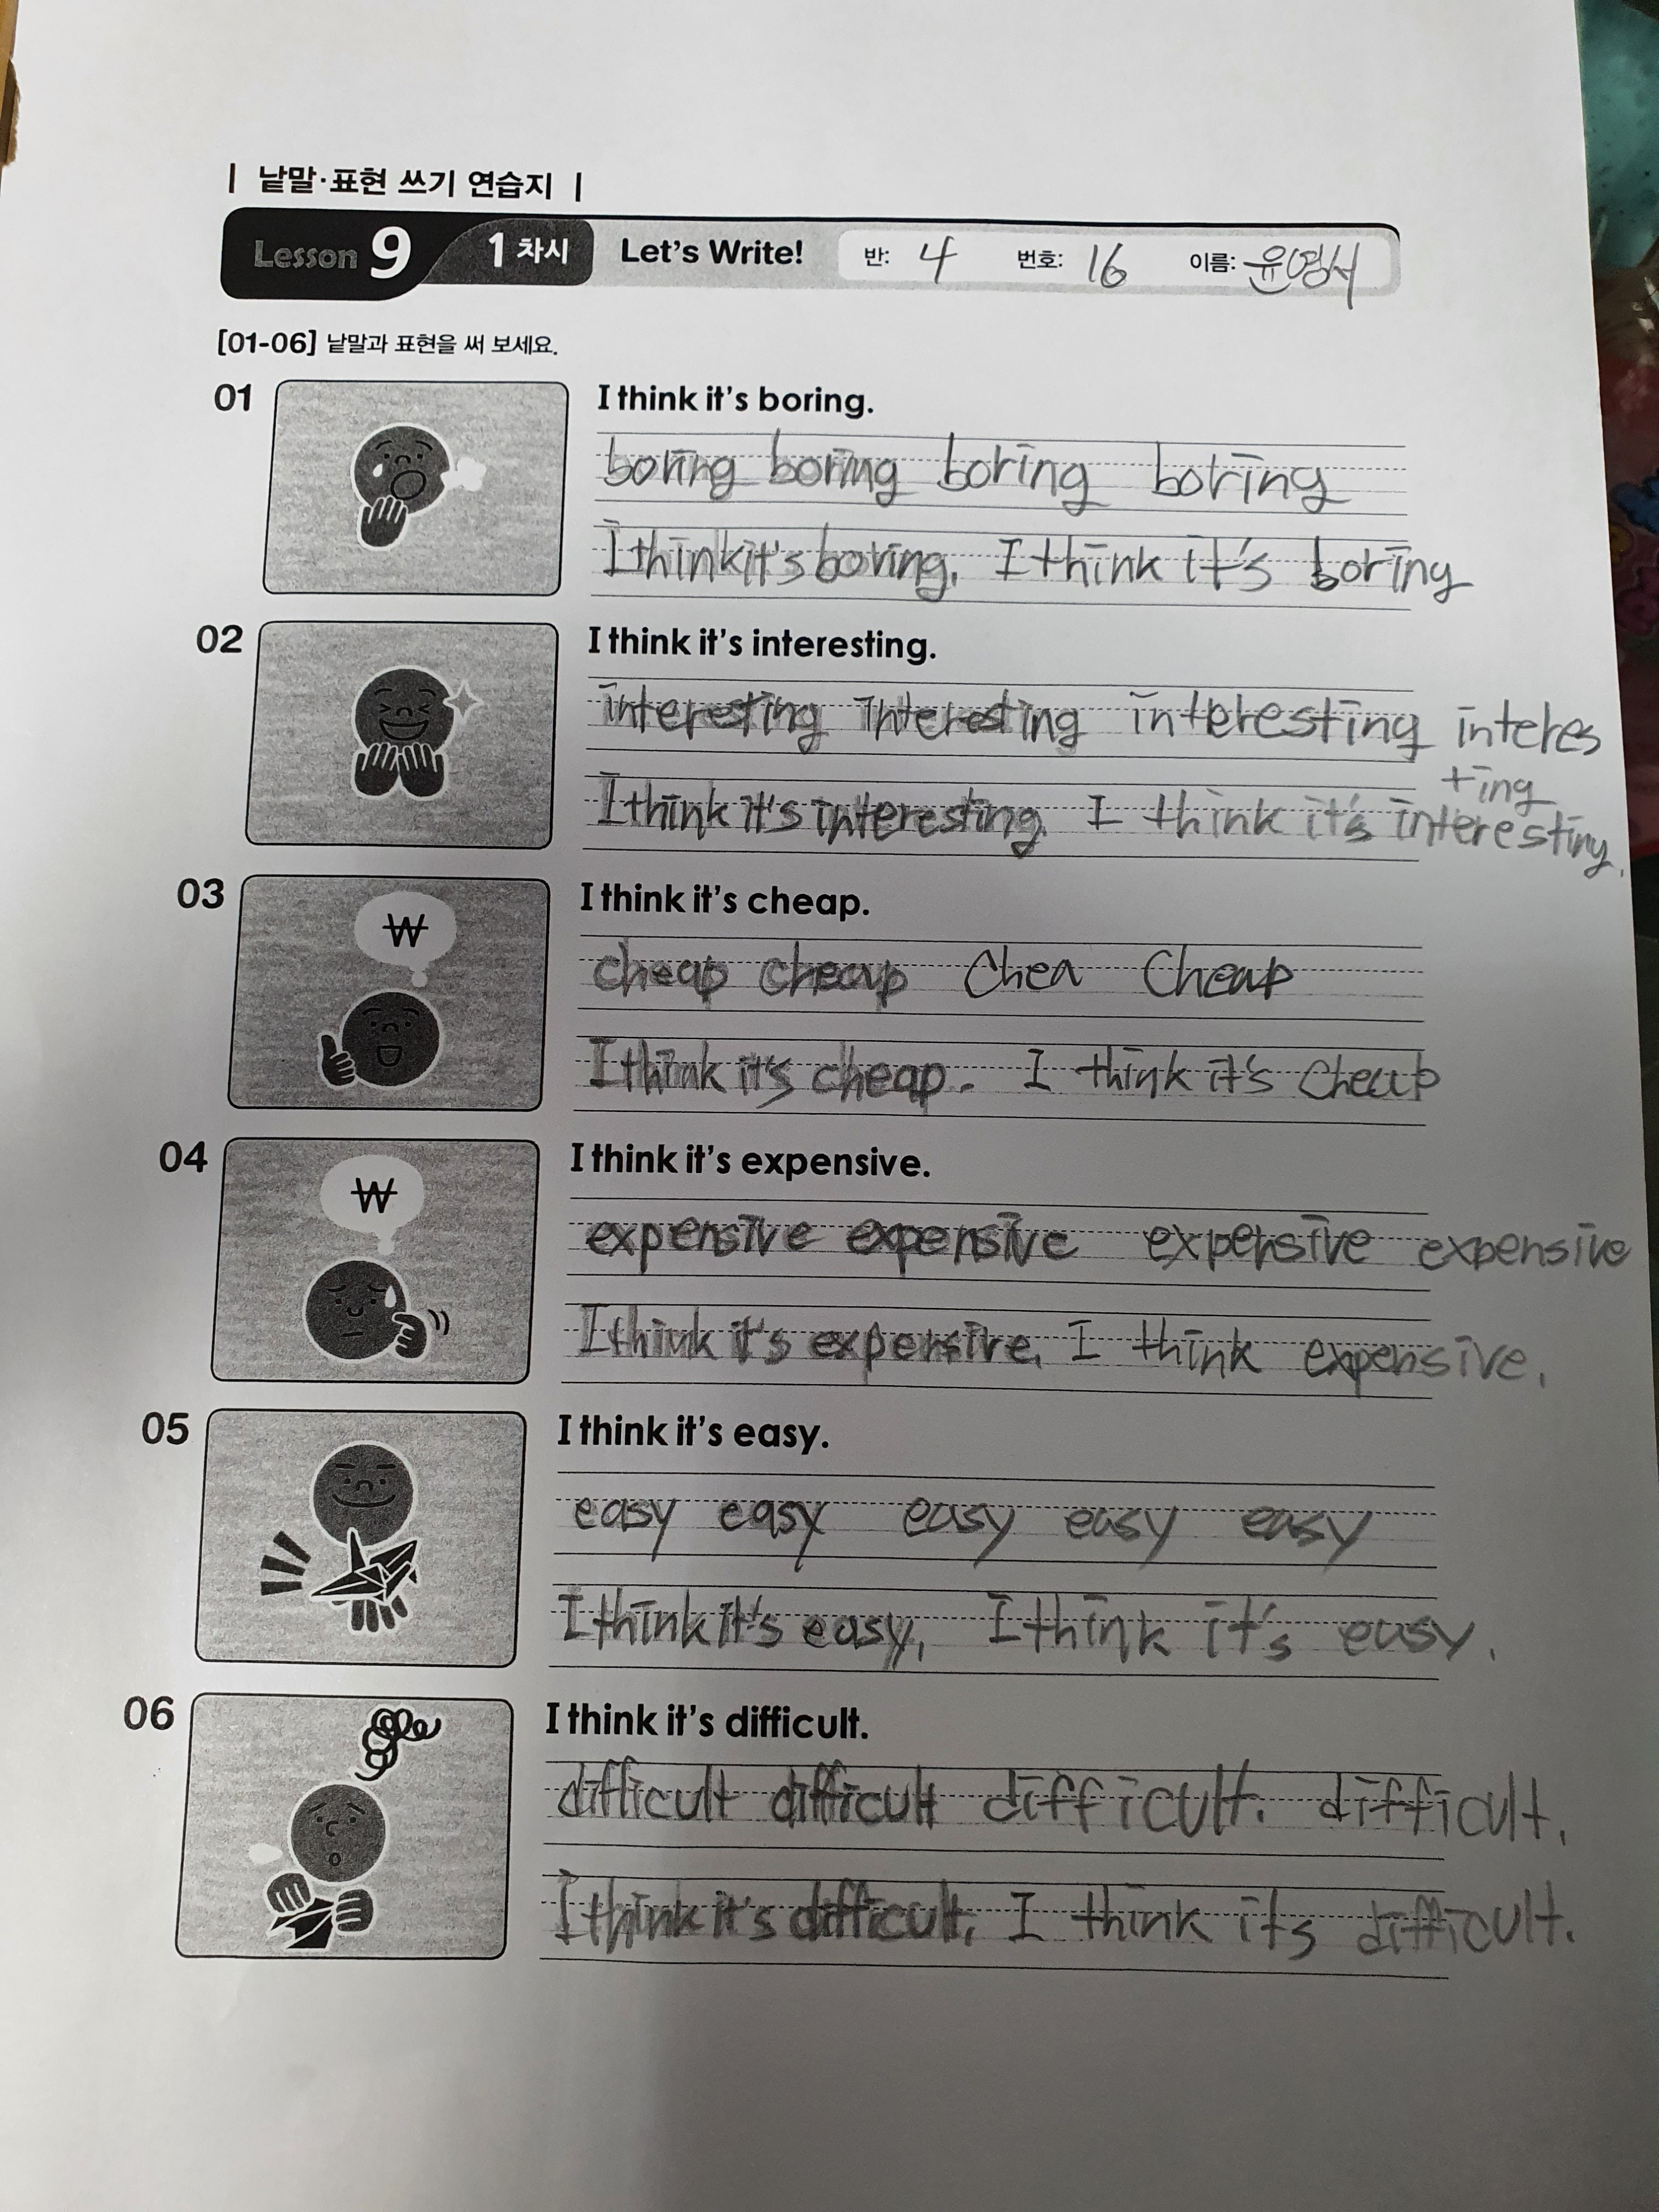 | 낱말·표현 쓰기 연습지 |
Lesson 9 1 차시 Let's Write! 반: 4 번호: 16 이름: 윤영서
[01-06] 낱말과 표현을 써 보세요.
01 I think it's boring.
boring boring boring boring
I think it's boring. I think it's boring
02 I think it's interesting.
interesting interesting interesting interes
ting
I think it's interesting. I think it's interesting.
03 I think it's cheap.
₩
cheap cheap Chea Cheap
I think it's cheap. I think it's Cheap
04 I think it's expensive.
₩
expensive expensive expensive expensive
I think it's expensive. I think expensive.
05 I think it's easy.
easy easy easy easy easy
I think it's easy. I think it's easy.
06 I think it's difficult.
difficult difficult difficult. difficult.
I think it's difficult. I think its difficult.